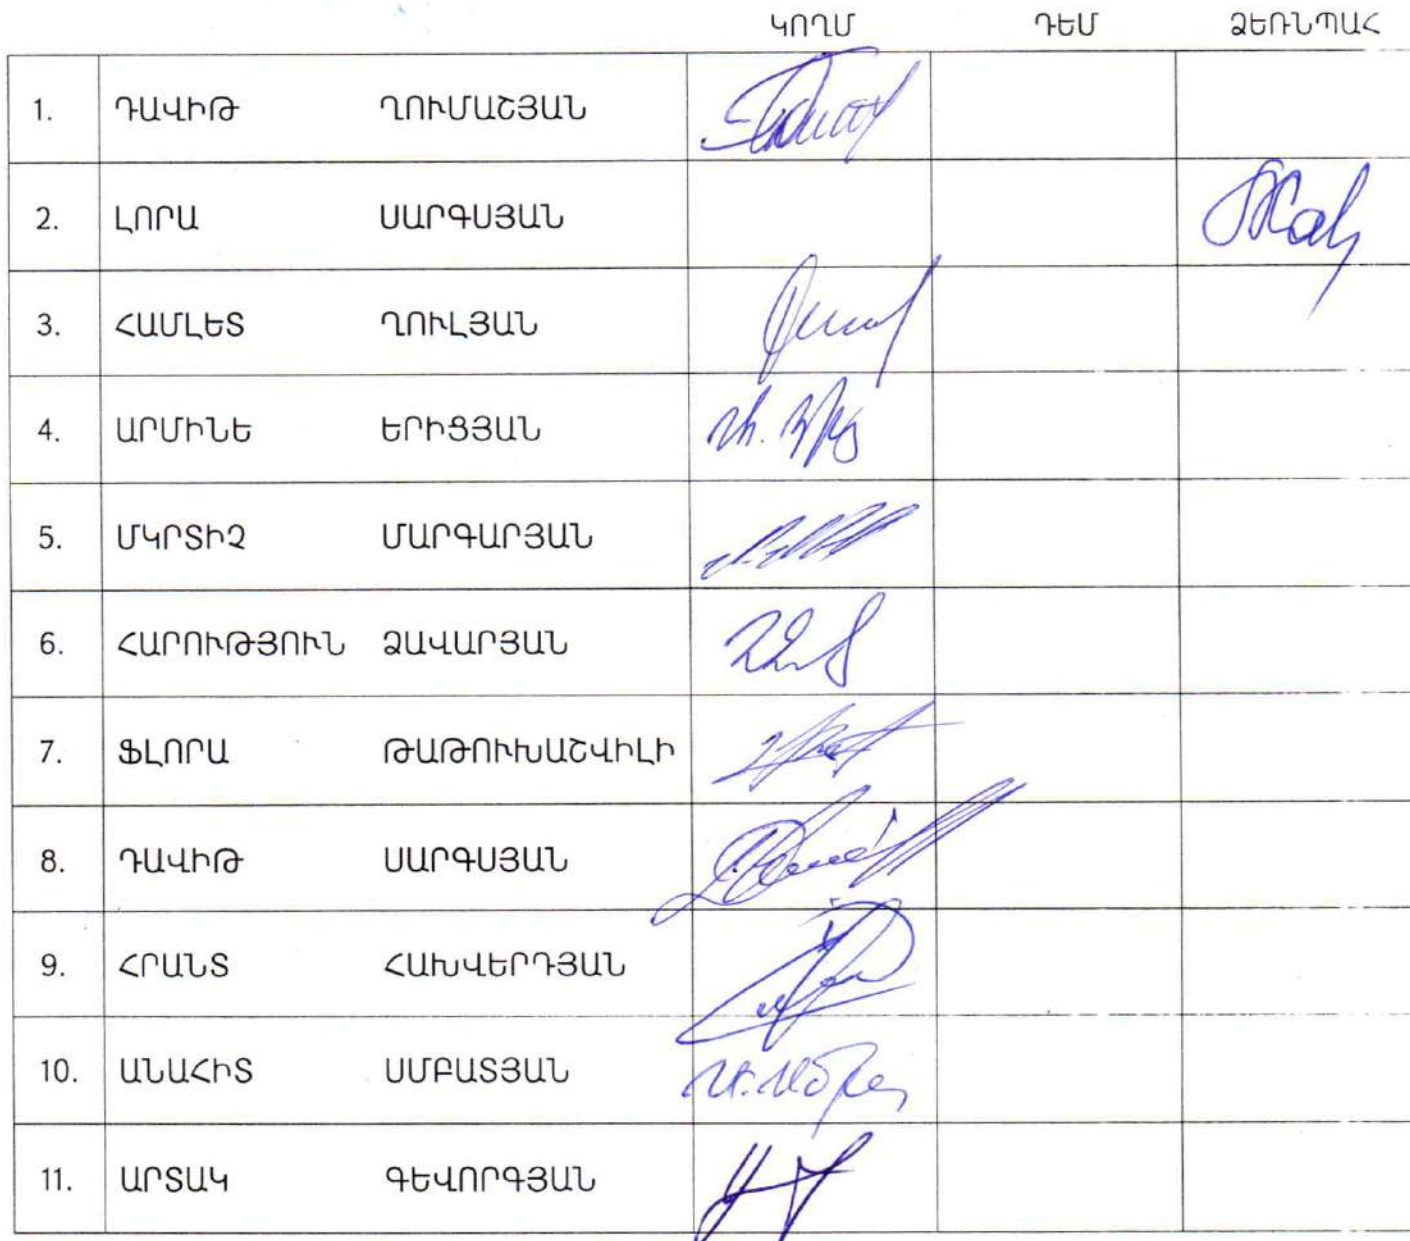 ԿՈՂՄ ԴԵՄ ՁԵՌՆՊԱՀ
1. ԴԱՎԻԹ ՂՈՒՄԱՇՅԱՆ
2. ԼՈՐԱ ՍԱՐԳՍՅԱՆ
3. ՀԱՄԼԵՏ ՂՈՒԼՅԱՆ
4. ԱՐՄԻՆԵ ԵՐԻՑՅԱՆ
5. ՄԿՐՏԻՉ ՄԱՐԳԱՐՅԱՆ
6. ՀԱՐՈՒԹՅՈՒՆ ՁԱՎԱՐՅԱՆ
7. ՖԼՈՐԱ ԹԱԹՈՒԽԱՇՎԻԼԻ
8. ԴԱՎԻԹ ՍԱՐԳՍՅԱՆ
9. ՀՐԱՆՏ ՀԱԽՎԵՐԴՅԱՆ
10. ԱՆԱՀԻՏ ՍՄԲԱՏՅԱՆ
11. ԱՐՏԱԿ ԳԵՎՈՐԳՅԱՆ